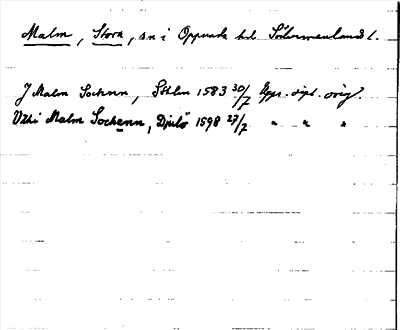 Malm, Stora, sn i Oppunda hd Södermanlands l.
J Malm Sochnn, Sthlm 1583 30/7 Upps. dipl. orig.
Vthi Malm Sochenn, Djulö 1598 27/7 " " "